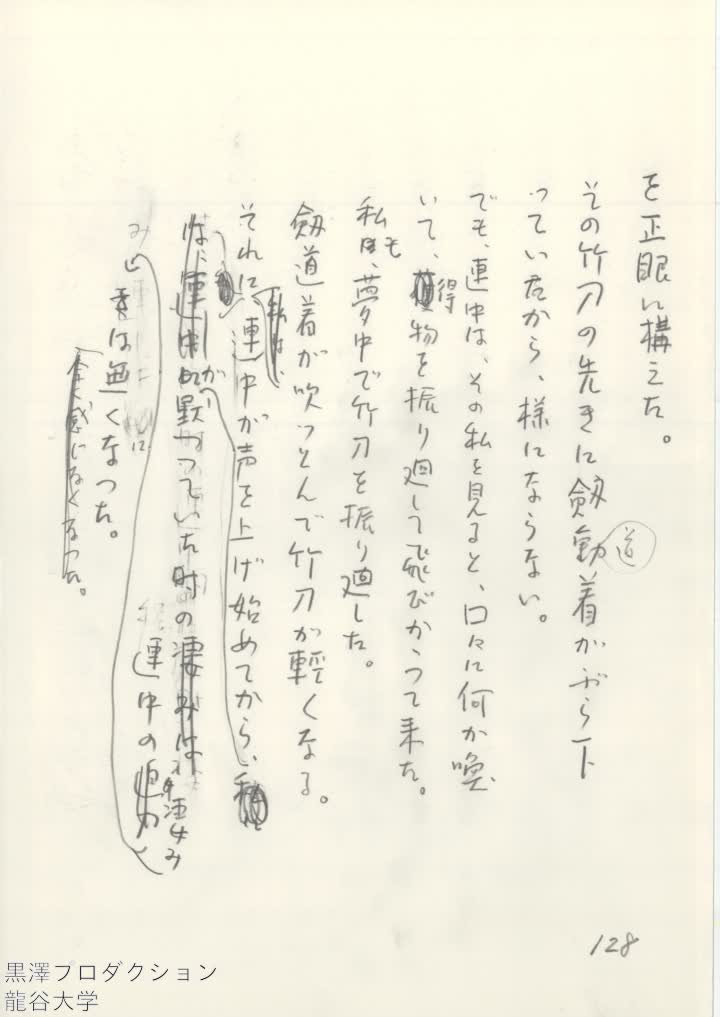 を正眼に構えた。
その竹刀の先きに劔動着がぶら下
道
っていたから、様にならない。
でも、連中は、その私を見ると、口々に何か喚
いて、得物を振り廻して飛びかゝって来た。
私も、夢中で竹刀を振り廻した。
劔道着が吹っとんで竹刀が軽くなる。
それに、連中が声を上げ始めてから、
私は、
は、連中が黙っていた時の凄みは
凄み
連中の
み
は無くなった。
全く感じなくなった。
128
黒澤プロダクション
龍谷大学